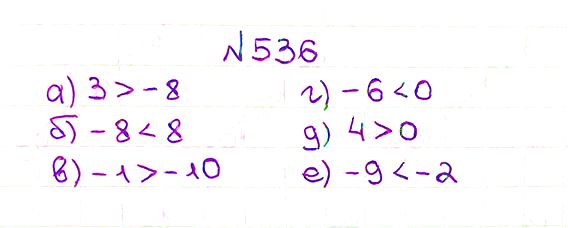 №536
а) 3 > -8 г) -6 < 0
б) -8 < 8 д) 4 > 0
в) -1 > -10 е) -9 < -2